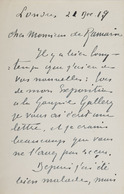 Londres, 22 Nov. 89
Cher Monsieur de
Il y a bien long-
temps que j'ai eu de
vos nouvelles: lors
de mon Exposition
à la Goupil Gallery
je vous ai écrit une
lettre, et je crains
beaucoup que vous
ne l'ayez pas reçu.
Depuis j'ai été
bien malade, mais